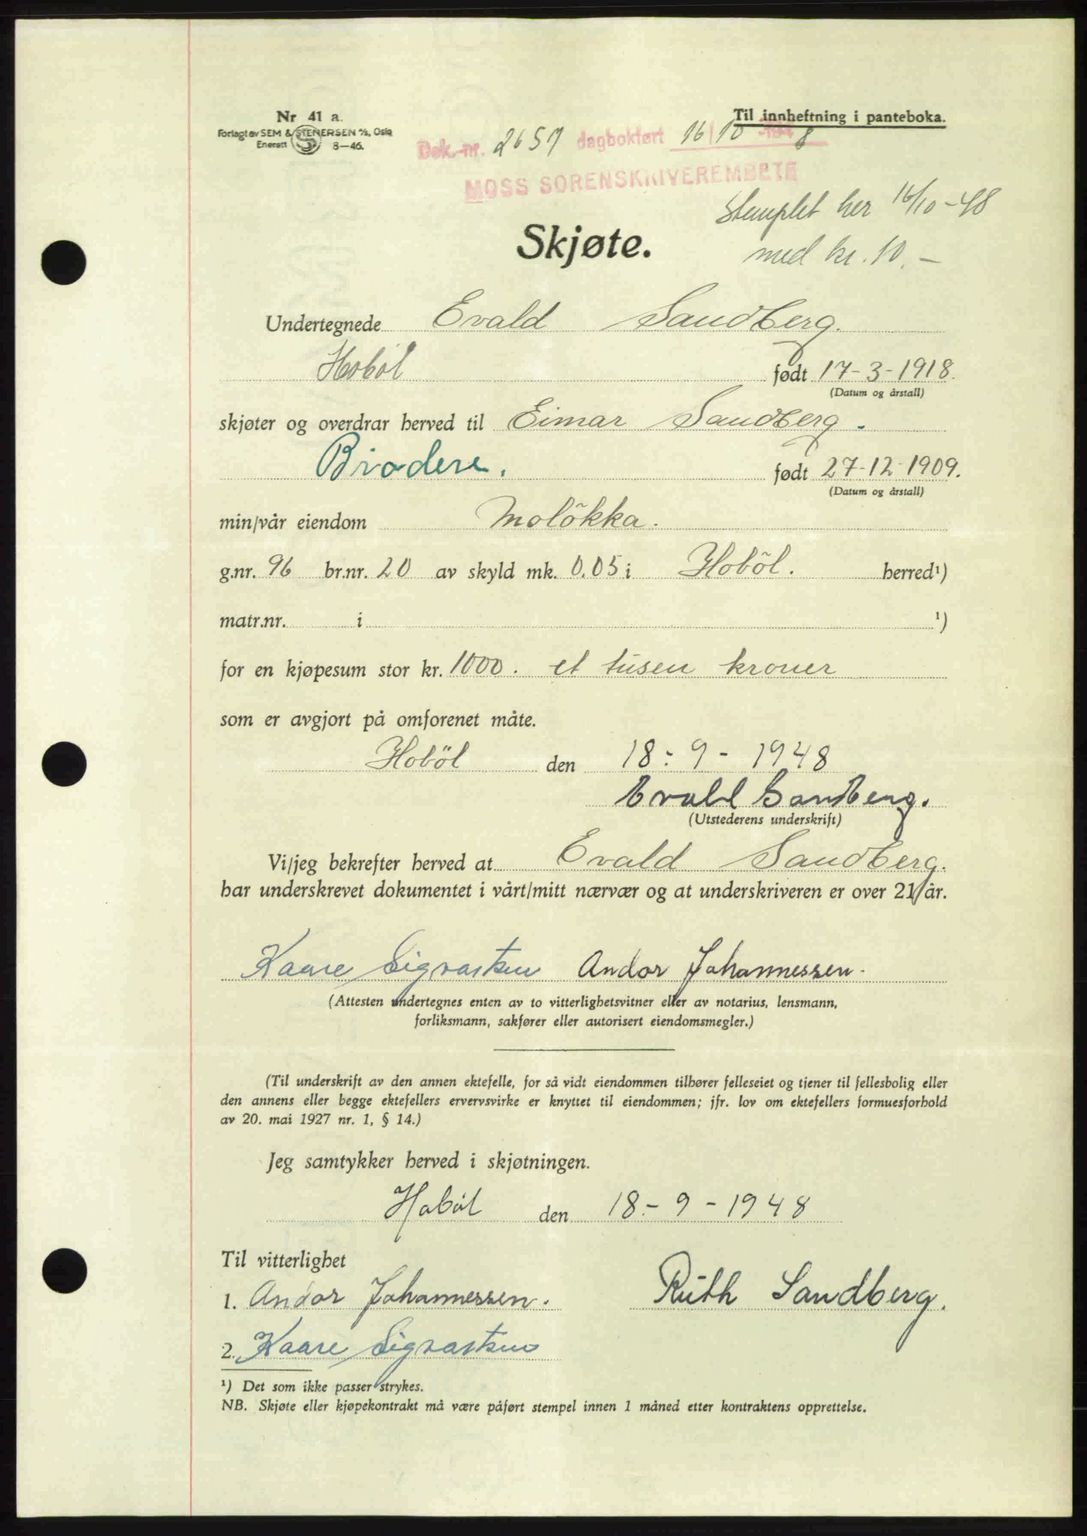 Nr 41 a.
Forlagt av SEM & STENERSEN A/S, Oslo
Enerett S 8-46.
Til innheftning i panteboka.
Dok. nr. 2657 dagbokført 16/10 1948
MOSS SORENSKRIVEREMBETE
Stemplet her 16/10-48
med kr. 10.-
Skjøte.
Undertegnede Evald Sandberg.
Hobøl født 17-3-1918.
(Datum og årstall)
skjøter og overdrar herved til Eimar Sandberg.
Brodere. født 27-12-1909.
(Datum og årstall)
min/vår eiendom Moløkka.
g.nr. 96 br.nr. 20 av skyld mk. 0.05 i Hobøl. herred¹)
matr.nr. i ¹)
for en kjøpesum stor kr. 1000. et tusen kroner
som er avgjort på omforenet måte.
Hobøl den 18-9-1948
Evald Sandberg.
(Utstederens underskrift)
Vi/jeg bekrefter herved at Evald Sandberg.
har underskrevet dokumentet i vårt/mitt nærvær og at underskriveren er over 21 år.
Kaare Sigvartsen Andor Johannessen.
(Attesten undertegnes enten av to vitterlighetsvitner eller av notarius, lensmann,
forliksmann, sakfører eller autorisert eiendomsmegler.)
(Til underskrift av den annen ektefelle, for så vidt eiendommen tilhører felleseiet og tjener til fellesbolig eller
den annens eller begge ektefellers ervervsvirke er knyttet til eiendommen; jfr. lov om ektefellers formuesforhold
av 20. mai 1927 nr. 1, § 14.)
Jeg samtykker herved i skjøtningen.
Hobøl den 18-9-1948
Til vitterlighet
1. Andor Johannessen. Ruth Sandberg.
2. Kaare Sigvartsen
¹) Det som ikke passer strykes.
NB. Skjøte eller kjøpekontrakt må være påført stempel innen 1 måned etter kontraktens opprettelse.